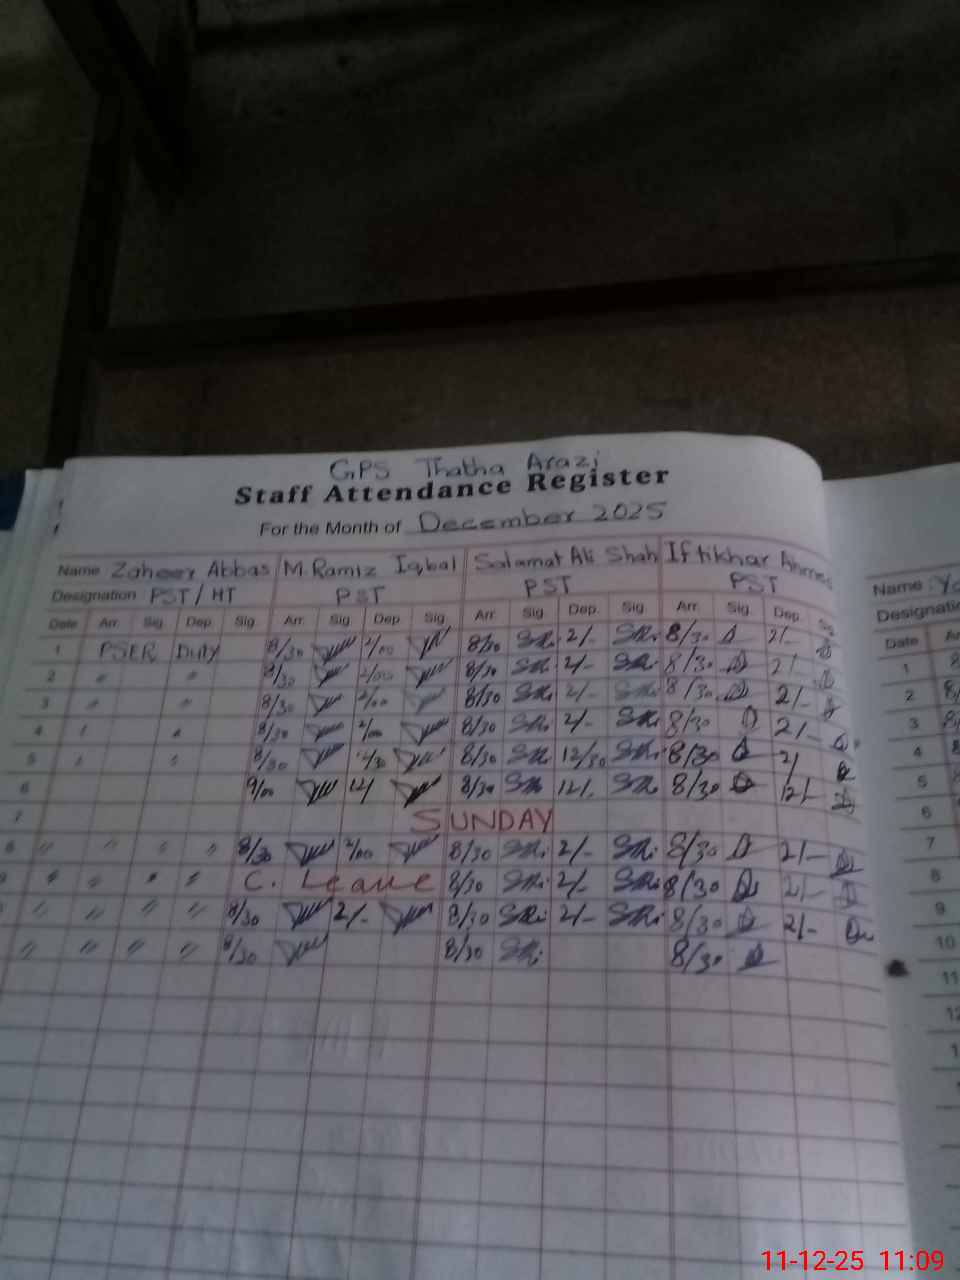 GPS Thatha Arazi
Staff Attendance Register
For the Month of December 2025
Name Zaheer Abbas M Ramiz Iqbal Salamat Ali Shah Iftikhar Ahmed
Designation PST / HT PST PST PST
Date Arr. Sig. Dep. Sig. Arr. Sig. Dep. Sig. Arr. Sig. Dep. Sig. Arr. Sig. Dep. Sig.
1 PSER Duty 8/30 2/00 8/30 2/- 8/30 2/-
2 " " 8/30 2/00 8/30 2/- 8/30 2/
3 " " 8/30 2/00 8/30 2/- 8/30 2/-
4 " " 8/30 2/00 8/30 2/- 8/30 2/-
5 " " 8/30 12/30 8/30 12/30 8/30 2/
6 9/00 12/ 8/30 12/. 8/30 12/-
7 SUNDAY
8 " " " " 8/30 2/00 8/30 2/- 8/30 2/-
" " " " C. Leave 8/30 2/- 8/30 2/-
" " " " 8/30 2/- 8/30 2/- 8/30 2/-
" " " " 8/30 8/30 8/30
Name
Date
1
2
3
4
5
6
7
8
9
10
11
11-12-25 11:09